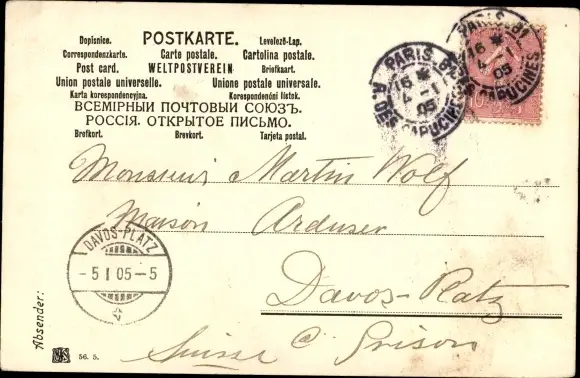 Dopisnice. POSTKARTE. Levelező-Lap.
Correspondenzkarte. Carte postale. Cartolina postale.
Post card. WELTPOSTVEREIN Briefkaart.
Union postale universelle. Unione postale universale.
Karta korespondencyjna. Korespondenční lístek.
ВСЕМІРНЫЙ ПОЧТОВЫЙ СОЮЗЪ.
РОССІЯ. ОТКРЫТОЕ ПИСЬМО.
Brefkort. Brevkort. Tarjeta postal.
PARIS 81
16
4 - 1
05
R. DES CAPUCINES
PARIS 81
16
4 - 1
05
CAPUCINES
10
Monsieur Martin Wolf
Maison Arduser
Davos-Platz
C. Grison
Suisse
DAVOS-PLATZ
- 5 I 05 - 5
Absender:
56. 5.